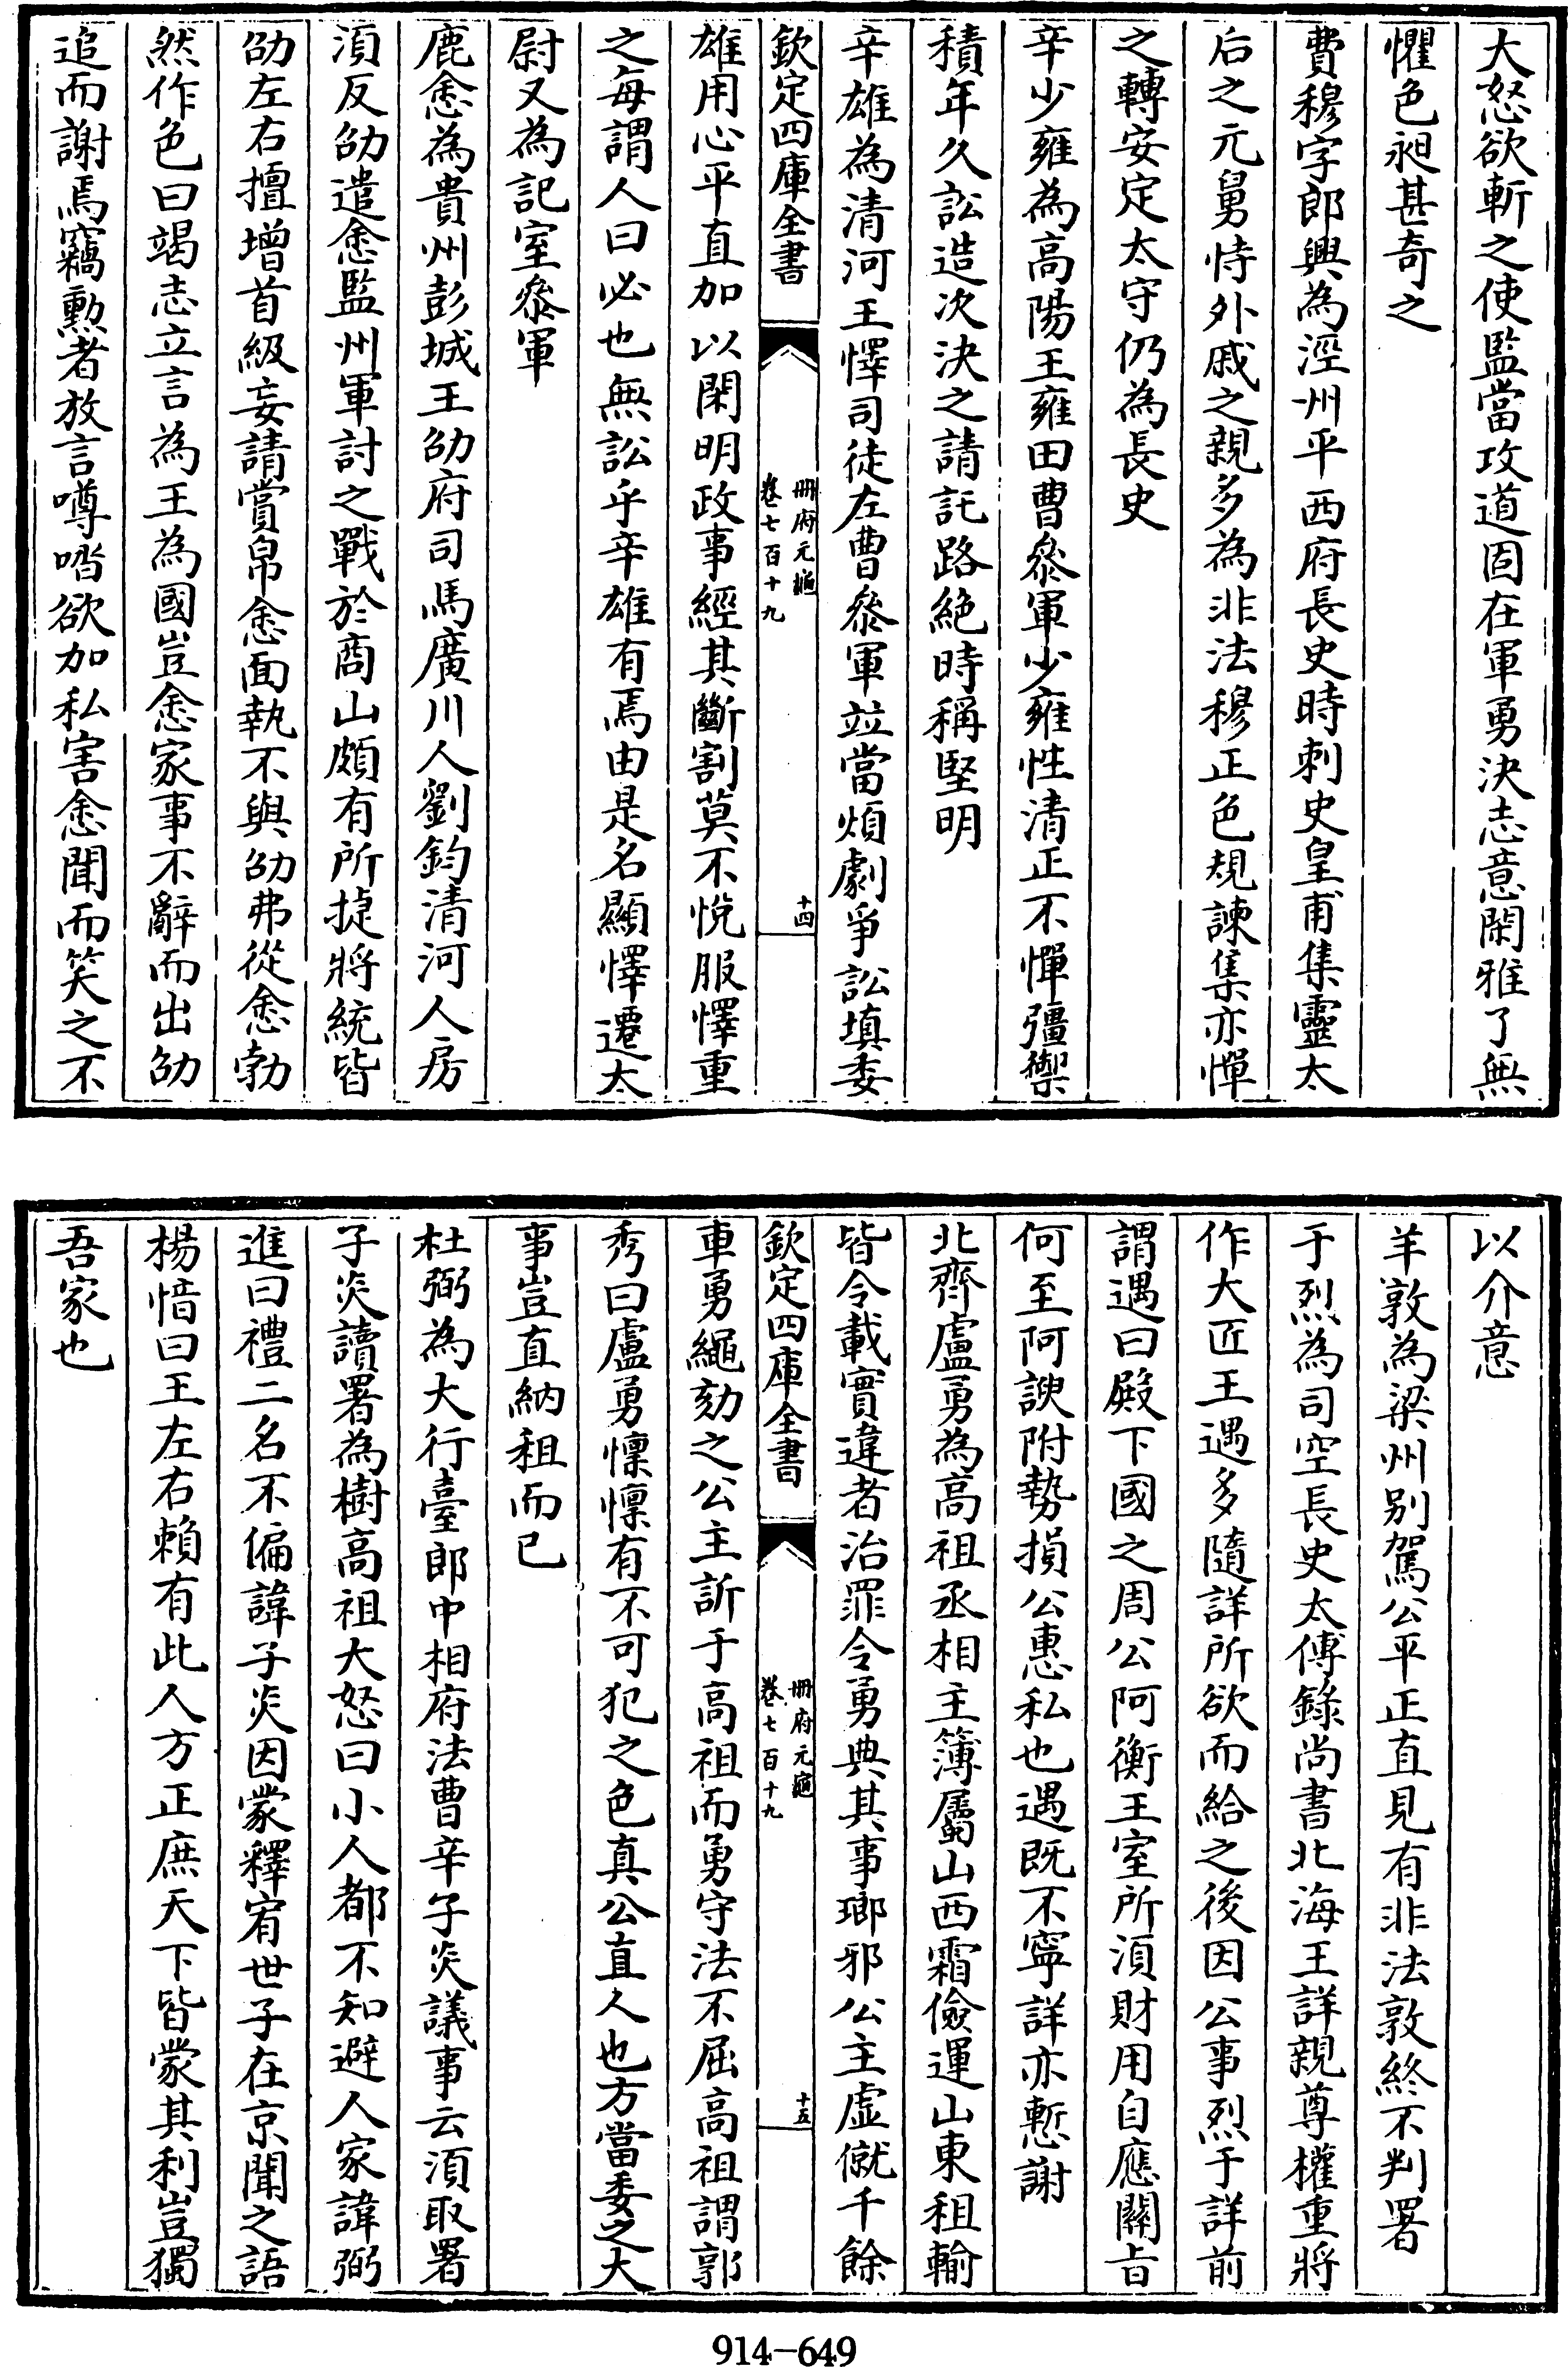 大怒欲斬之使監當攻道固在軍勇決志意閑雅了無
懼色昶甚奇之
費穆字郎興為涇州平西府長史時刺史皇甫集靈太
后之元舅恃外戚之親多為非法穆正色規諫集亦憚
之轉安定太守仍為長史
辛少雍為高陽王雍田曹叅軍少雍性清正不憚彊禦
積年久訟造次決之請託路絕時稱堅明
辛雄為清河王懌司徒左曹叅軍竝當煩劇爭訟填委
欽定四庫全書
冊府元龜
卷七百十九
十四
雄用心平直加以閑明政事經其斷割莫不悅服懌重
之每謂人曰必也無訟乎辛雄有焉由是名顯懌遷太
尉又為記室叅軍
鹿悆為貴州彭城王劭府司馬廣川人劉鈞清河人房
湏反劭遣悆監州軍討之戰於商山頗有所捷將統皆
劭左右擅增首級妄請賞帛悆面執不與劭弗從悆勃
然作色曰竭志立言為王為國豈悆家事不辭而出劭
追而謝焉竊勲者放言噂㗳欲加私害悆聞而笑之不
以介意
羊敦為梁州別駕公平正直見有非法敦終不判署
于烈為司空長史太傅錄尚書北海王詳親尊權重將
作大匠王遇多隨詳所欲而給之後因公事烈于詳前
謂遇曰殿下國之周公阿衡王室所湏財用自應關旨
何至阿諛附勢損公惠私也遇既不寧詳亦慙謝
北齊盧勇為高祖丞相主簿屬山西霜儉運山東租輸
皆令載實違者治罪令勇典其事瑯邪公主虛僦千餘
欽定四庫全書
冊府元龜
卷七百十九
十五
車勇繩劾之公主訴于高祖而勇守法不屈高祖謂郭
秀曰盧勇懍懍有不可犯之色真公直人也方當委之大
事豈直納租而已
杜弼為大行臺郎中相府法曹辛子炎議事云湏取署
子炎讀署為樹高祖大怒曰小人都不知避人家諱弼
進曰禮二名不偏諱子炎因蒙釋宥世子在京聞之語
楊愔曰王左右賴有此人方正庶天下皆蒙其利豈獨
吾家也
914-649